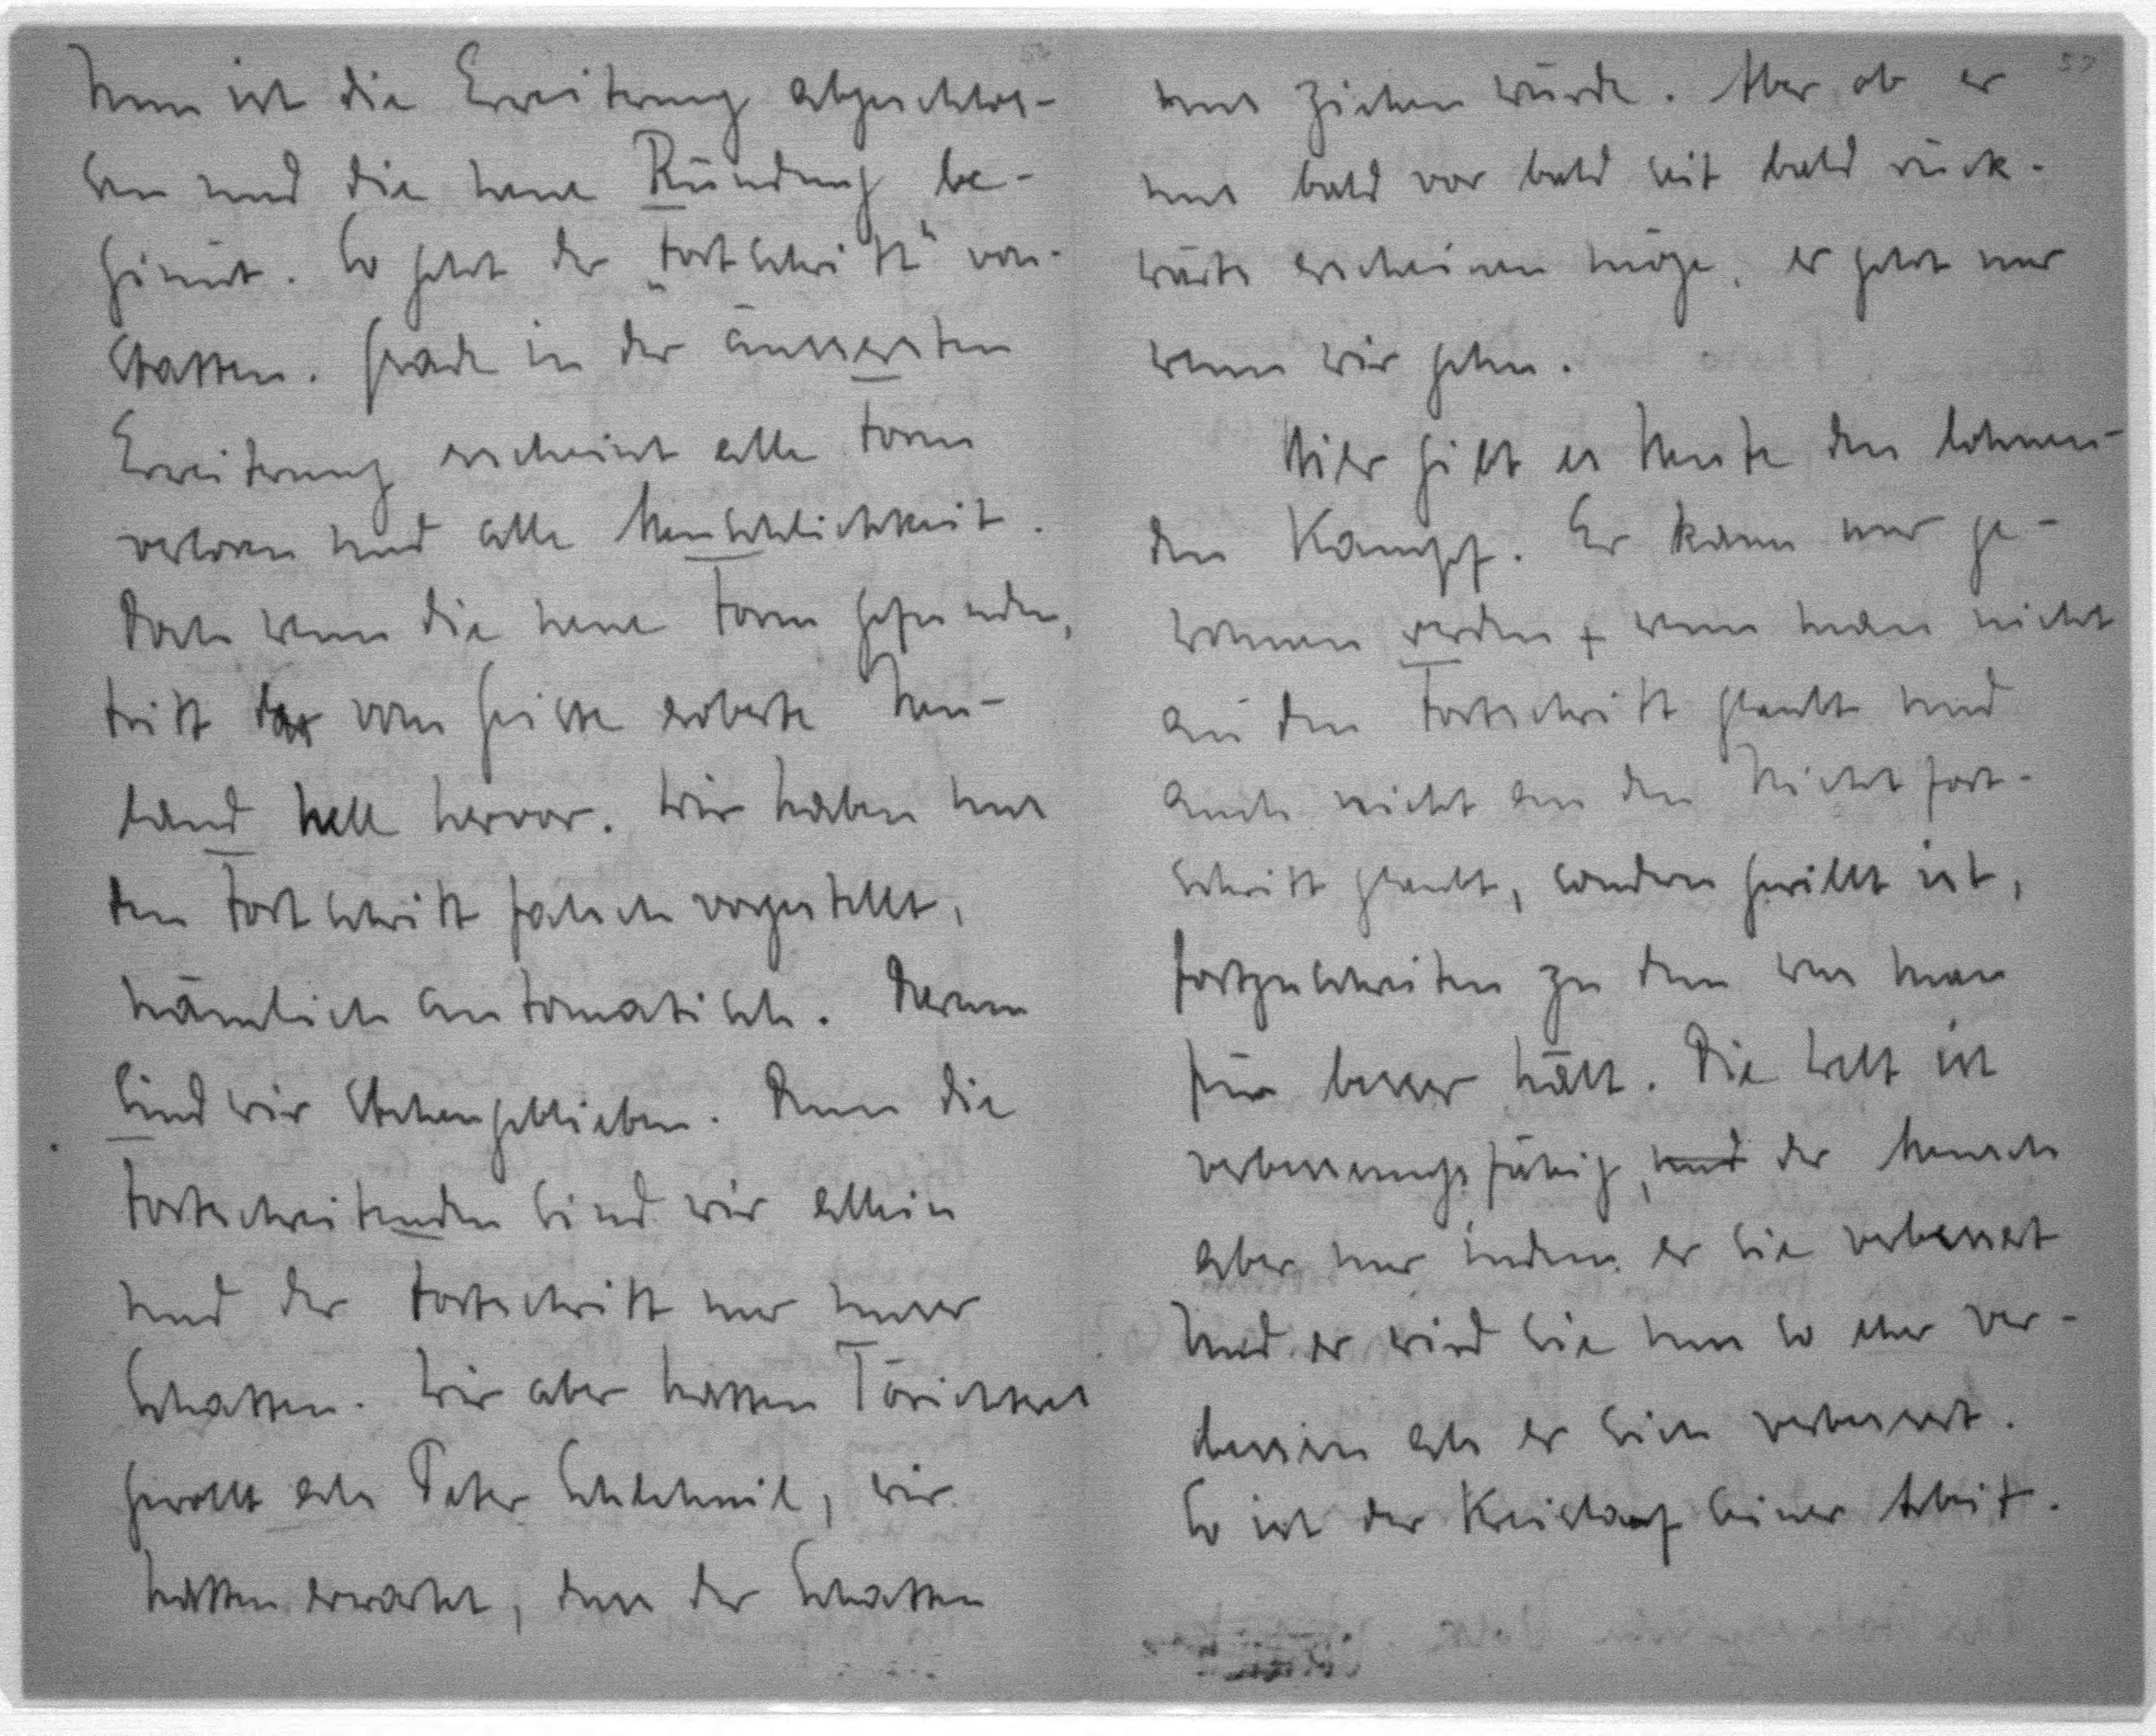 Nun ist die Erweitrung abgeschlos-
sen und die neue Ründung be-
ginnt. So geht der „Fortschritt" von-
statten. Grade in der äussersten
Erweitrung erscheint alle Form
verloren und alle Menschlichkeit.
Doch wenn die neue Form gefunden,
tritt das vom Geiste eroberte Neu-
land hell hervor. Wir haben uns
den Fortschritt falsch vorgestellt,
nämlich automatisch. Darum
sind wir stehengeblieben. Denn die
Fortschreitenden sind wir allein
und der Fortschritt nur unser
Schatten. Wir aber hatten Törichtres
gewollt als Peter Schlehmil, wir
hatten erwartet, dass der Schatten
uns ziehen würde. Aber ob er
uns bald vor bald seit bald rück-
wärts erscheinen möge, er geht nur
wenn wir gehn.
Hier gilt es heute den lohnen-
den Kampf. Er kann nur ge-
wonnen werden + wenn man nicht
an den Fortschritt glaubt und
auch nicht an den Nichtfort-
schritt glaubt, sondern gewillt ist,
fortzuschreiten zu dem was man
für besser hält. Die Welt ist
verbesserungsfähig, und der Mensch
aber nur indem er sie verbessert
Und er wird sie nur so eher ver-
bessern als er sich verbessert.
So ist der Kreislauf seiner Arbeit.